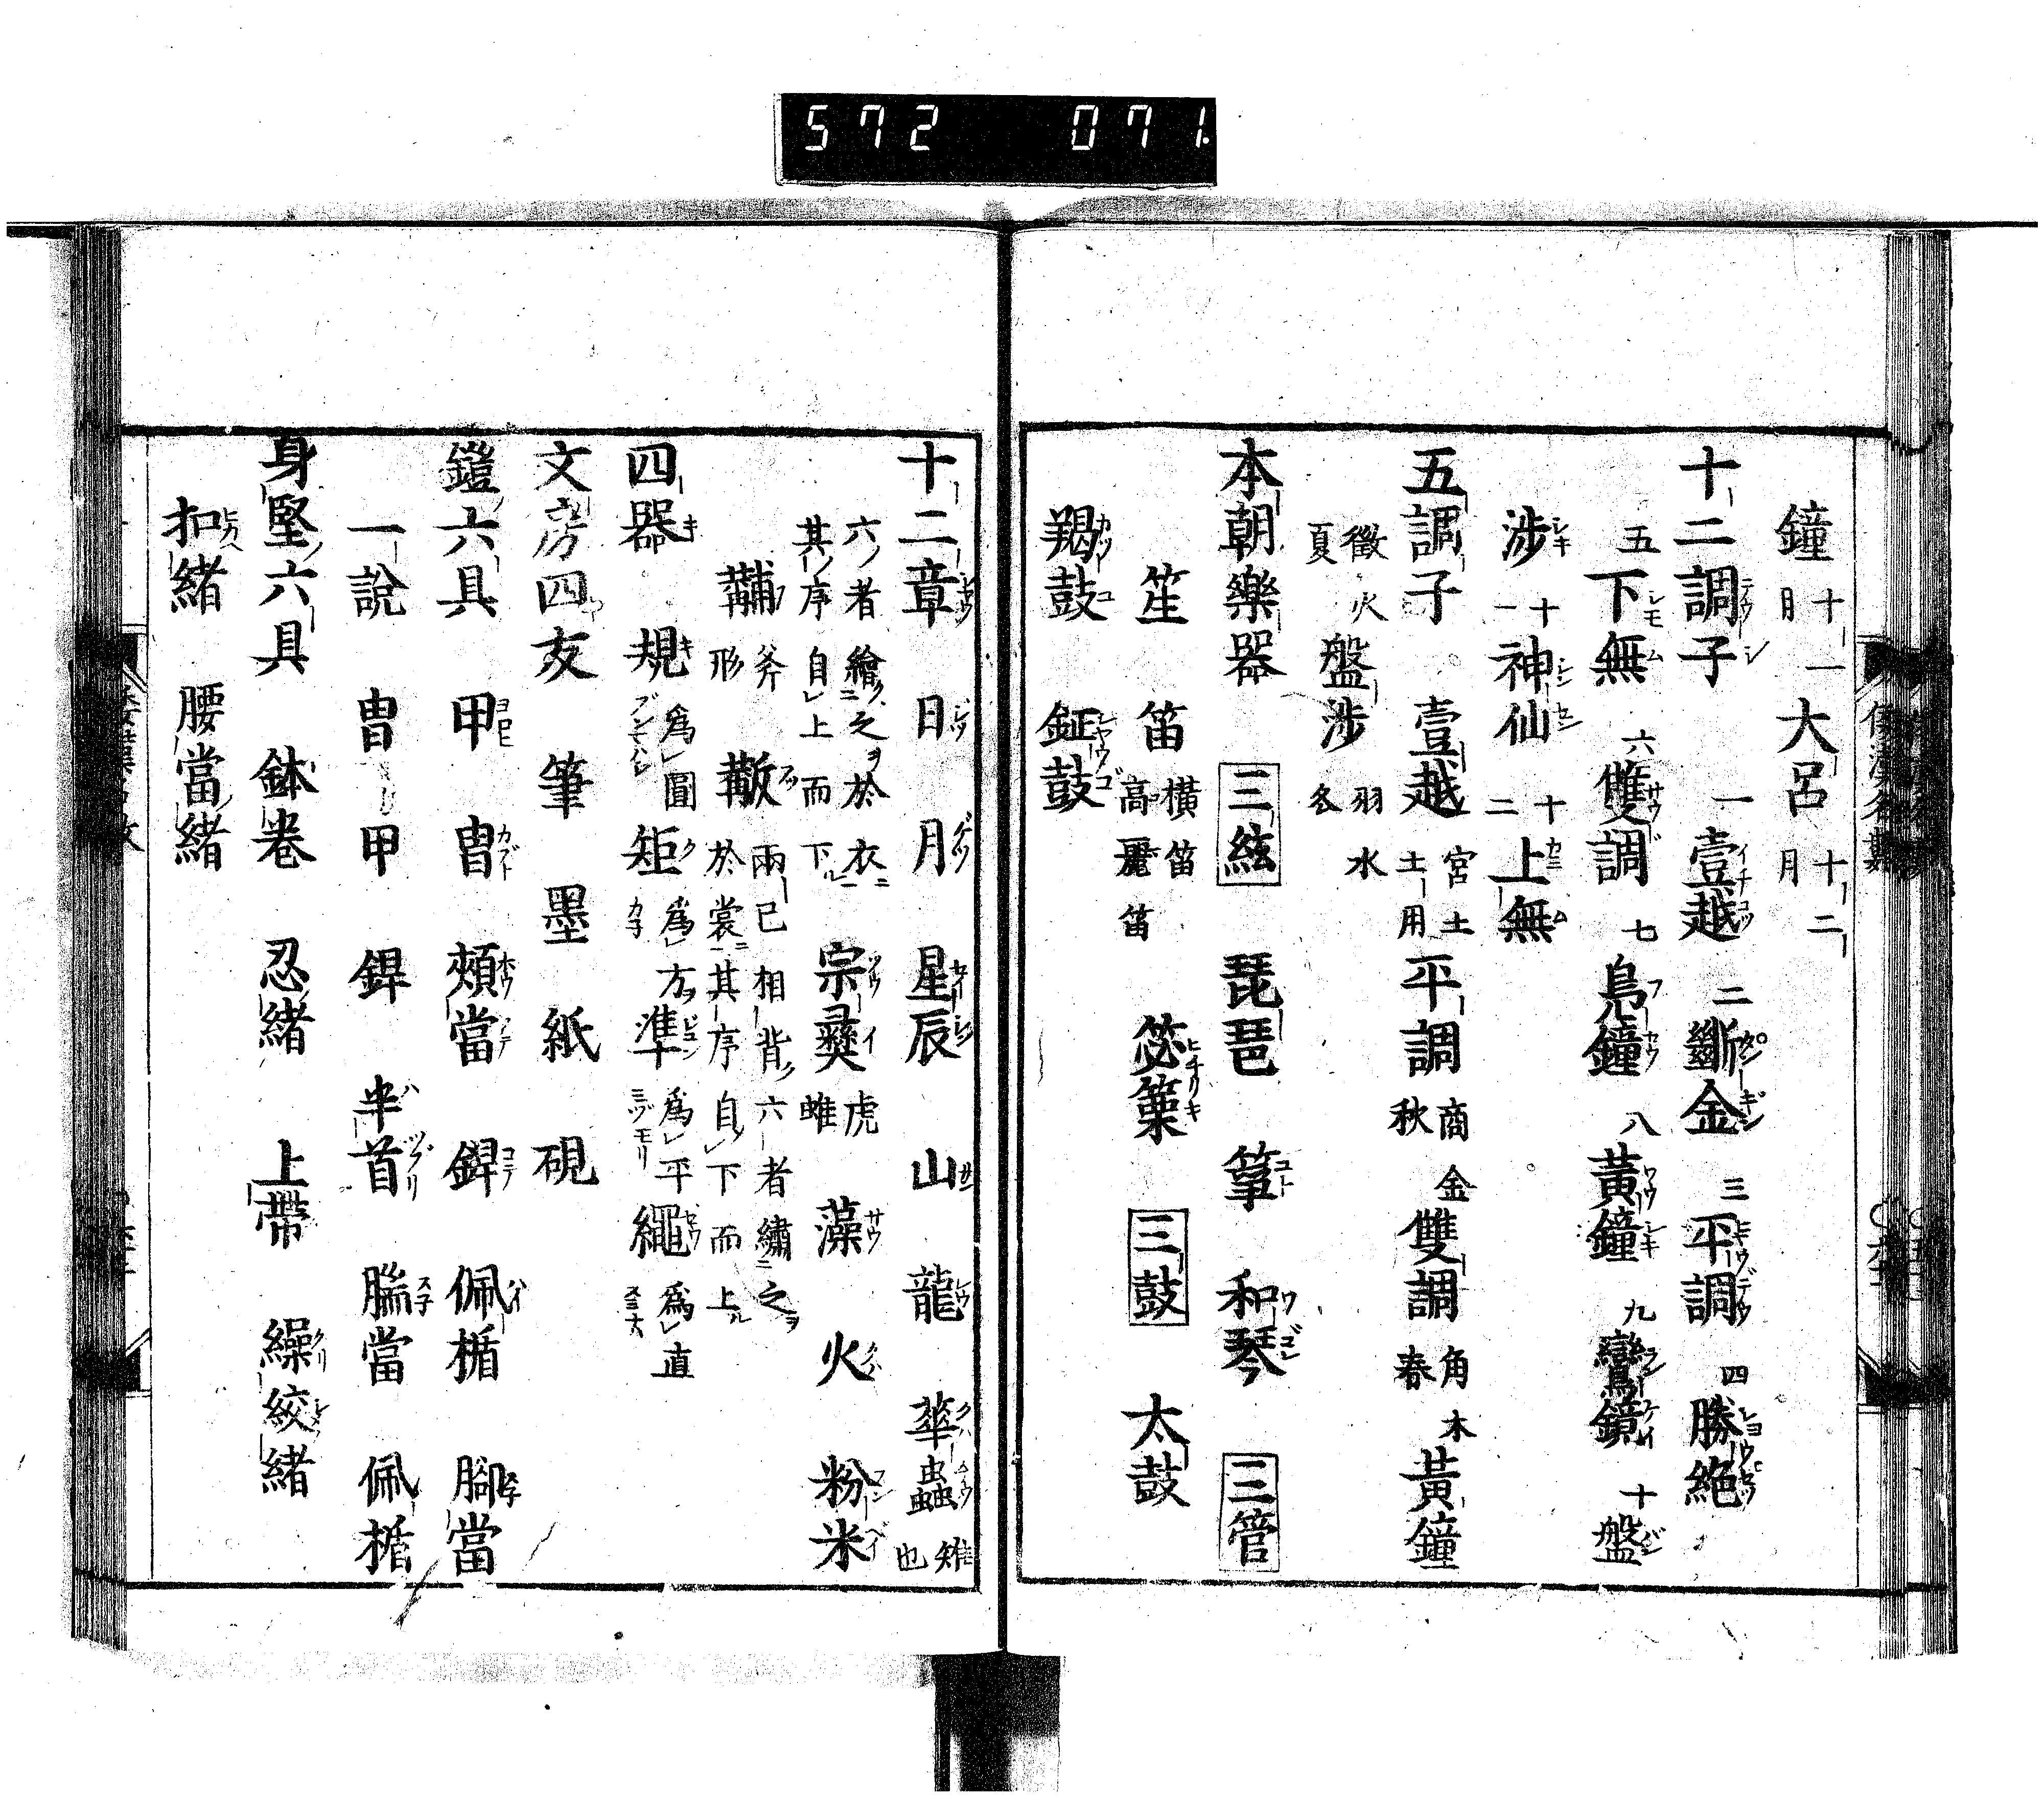 572 071.
鐘 十一月 大呂 十二月
十二調子 一壹越 二斷金 三平調 四勝絶
五下無 六雙調 七鳧鐘 八黃鐘 九鸞鏡 十盤
涉 十一神仙 十二上無
五調子 壹越 宮土土用 平調 商金秋 雙調 角木春 黃鐘
徵火夏 盤涉 羽水冬
本朝樂器 三絃 琵琶 箏 和琴 三管
笙 笛 橫笛高麗笛 篳篥 三鼓 太鼓
羯鼓 鉦鼓
十二章 日 月 星辰 山 龍 華蟲 雉也
六者繪之於衣其序自上而下 宗彝 虎蜼 藻 火 粉米
黼 斧形 黻 兩已相背六者繡之於裳其序自下而上
四器 規 爲圓ブンマハシ 矩 爲方カネ 準 爲平ミヅモリ 繩 爲直スミナハ
文房四友 筆 墨 紙 硯
鎧六具 甲 冑 頰當 銲 佩楯 脚當
一說 冑 甲 銲 半首 臑當 佩楯
身堅六具 鉢卷 忍緒 上帶 繰絞緒
扣緒 腰當緒